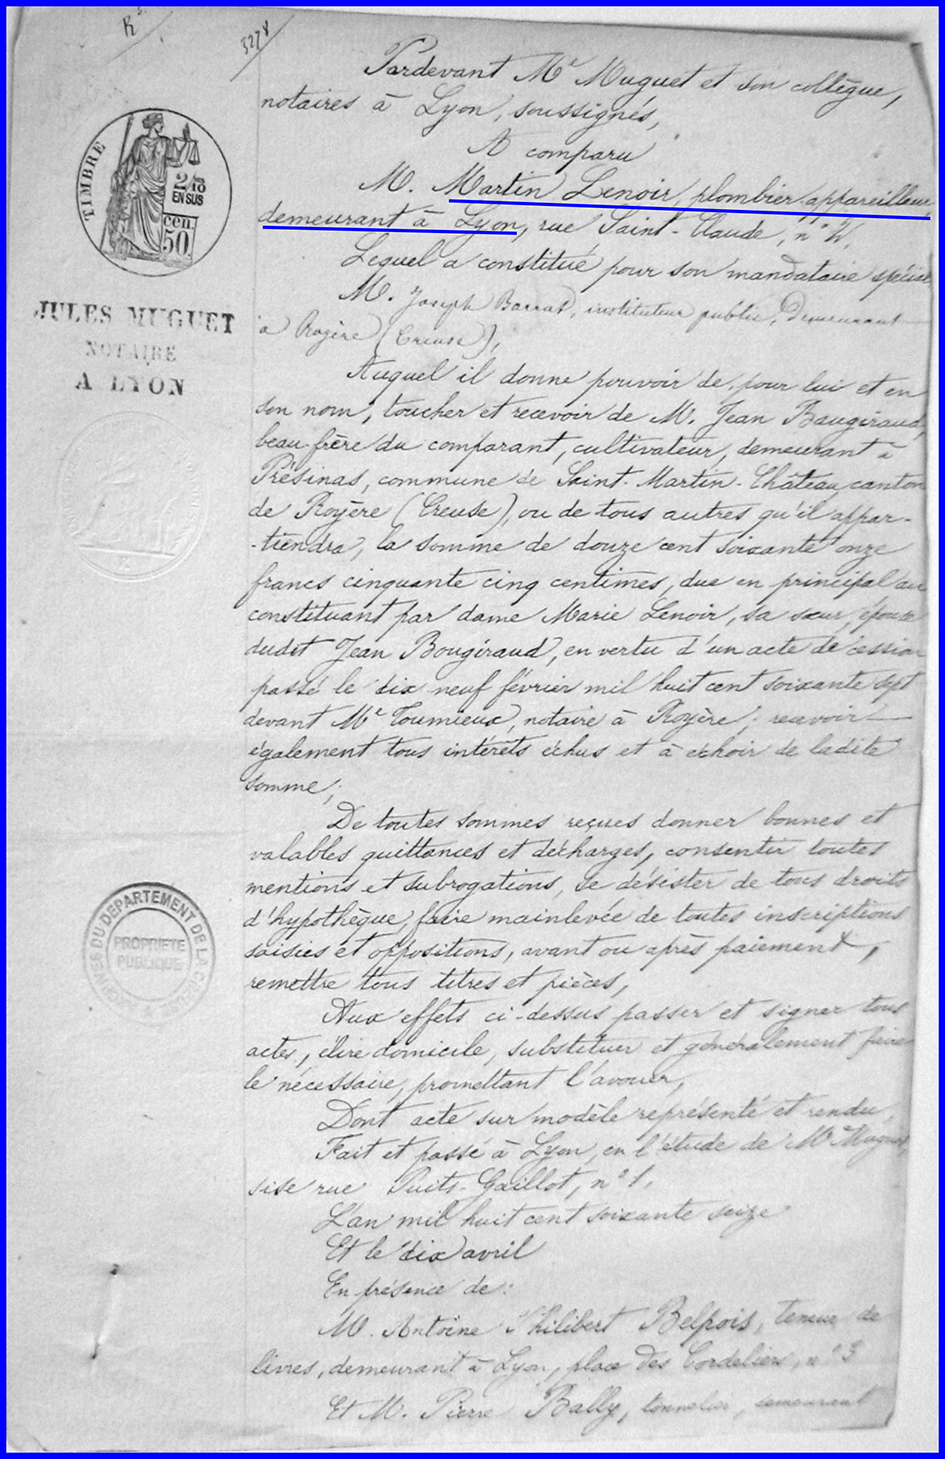 R
3278
TIMBRE
2/10
EN SUS
cen.
50
JULES MUGUET
NOTAIRE
A LYON
ARCHIVES DU DÉPARTEMENT DE LA CREUSE
PROPRIETE
PUBLIQUE
Pardevant Me Muguet et son collègue,
notaires à Lyon, soussignés,
A comparu
M. Martin Lenoir, plombier, appareilleur,
demeurant à Lyon, rue Saint-Claude, n° 4.
Lequel a constitué pour son mandataire spécial
M. Joseph Barrat, instituteur public, demeurant
à Royère (Creuse),
Auquel il donne pouvoir de, pour lui et en
son nom, toucher et recevoir de M. Jean Baugiraud,
beau-frère du comparant, cultivateur, demeurant à
Présinas, commune de Saint-Martin-Château, canton
de Royère (Creuse), ou de tous autres qu'il appar-
-tiendra, la somme de douze cent soixante onze
francs cinquante cinq centimes, due en principal au
constituant par dame Marie Lenoir, sa sœur, épouse
dudit Jean Bougiraud, en vertu d'un acte de cession
passé le dix neuf février mil huit cent soixante sept
devant Me Toumieux, notaire à Royère; recevoir
également tous intérêts échus et à échoir de ladite
somme;
De toutes sommes reçues donner bonnes et
valables quittances et décharges, consentir toutes
mentions et subrogations, se désister de tous droits
d'hypothèque, faire mainlevée de toutes inscriptions
saisies et oppositions, avant ou après paiement,
remettre tous titres et pièces,
Aux effets ci-dessus passer et signer tous
actes, élire domicile, substituer et généralement faire
le nécessaire, promettant l'avouer,
Dont acte sur modèle représenté et rendu,
Fait et passé à Lyon, en l'étude de Me Muguet,
sise rue Puits-Gaillot, n° 1,
L'an mil huit cent soixante seize
Et le dix avril
En présence de:
M. Antoine Philibert Belpois, teneur de
livres, demeurant à Lyon, place des Cordeliers, n° 3
Et M. Pierre Bally, tonnelier, demeurant